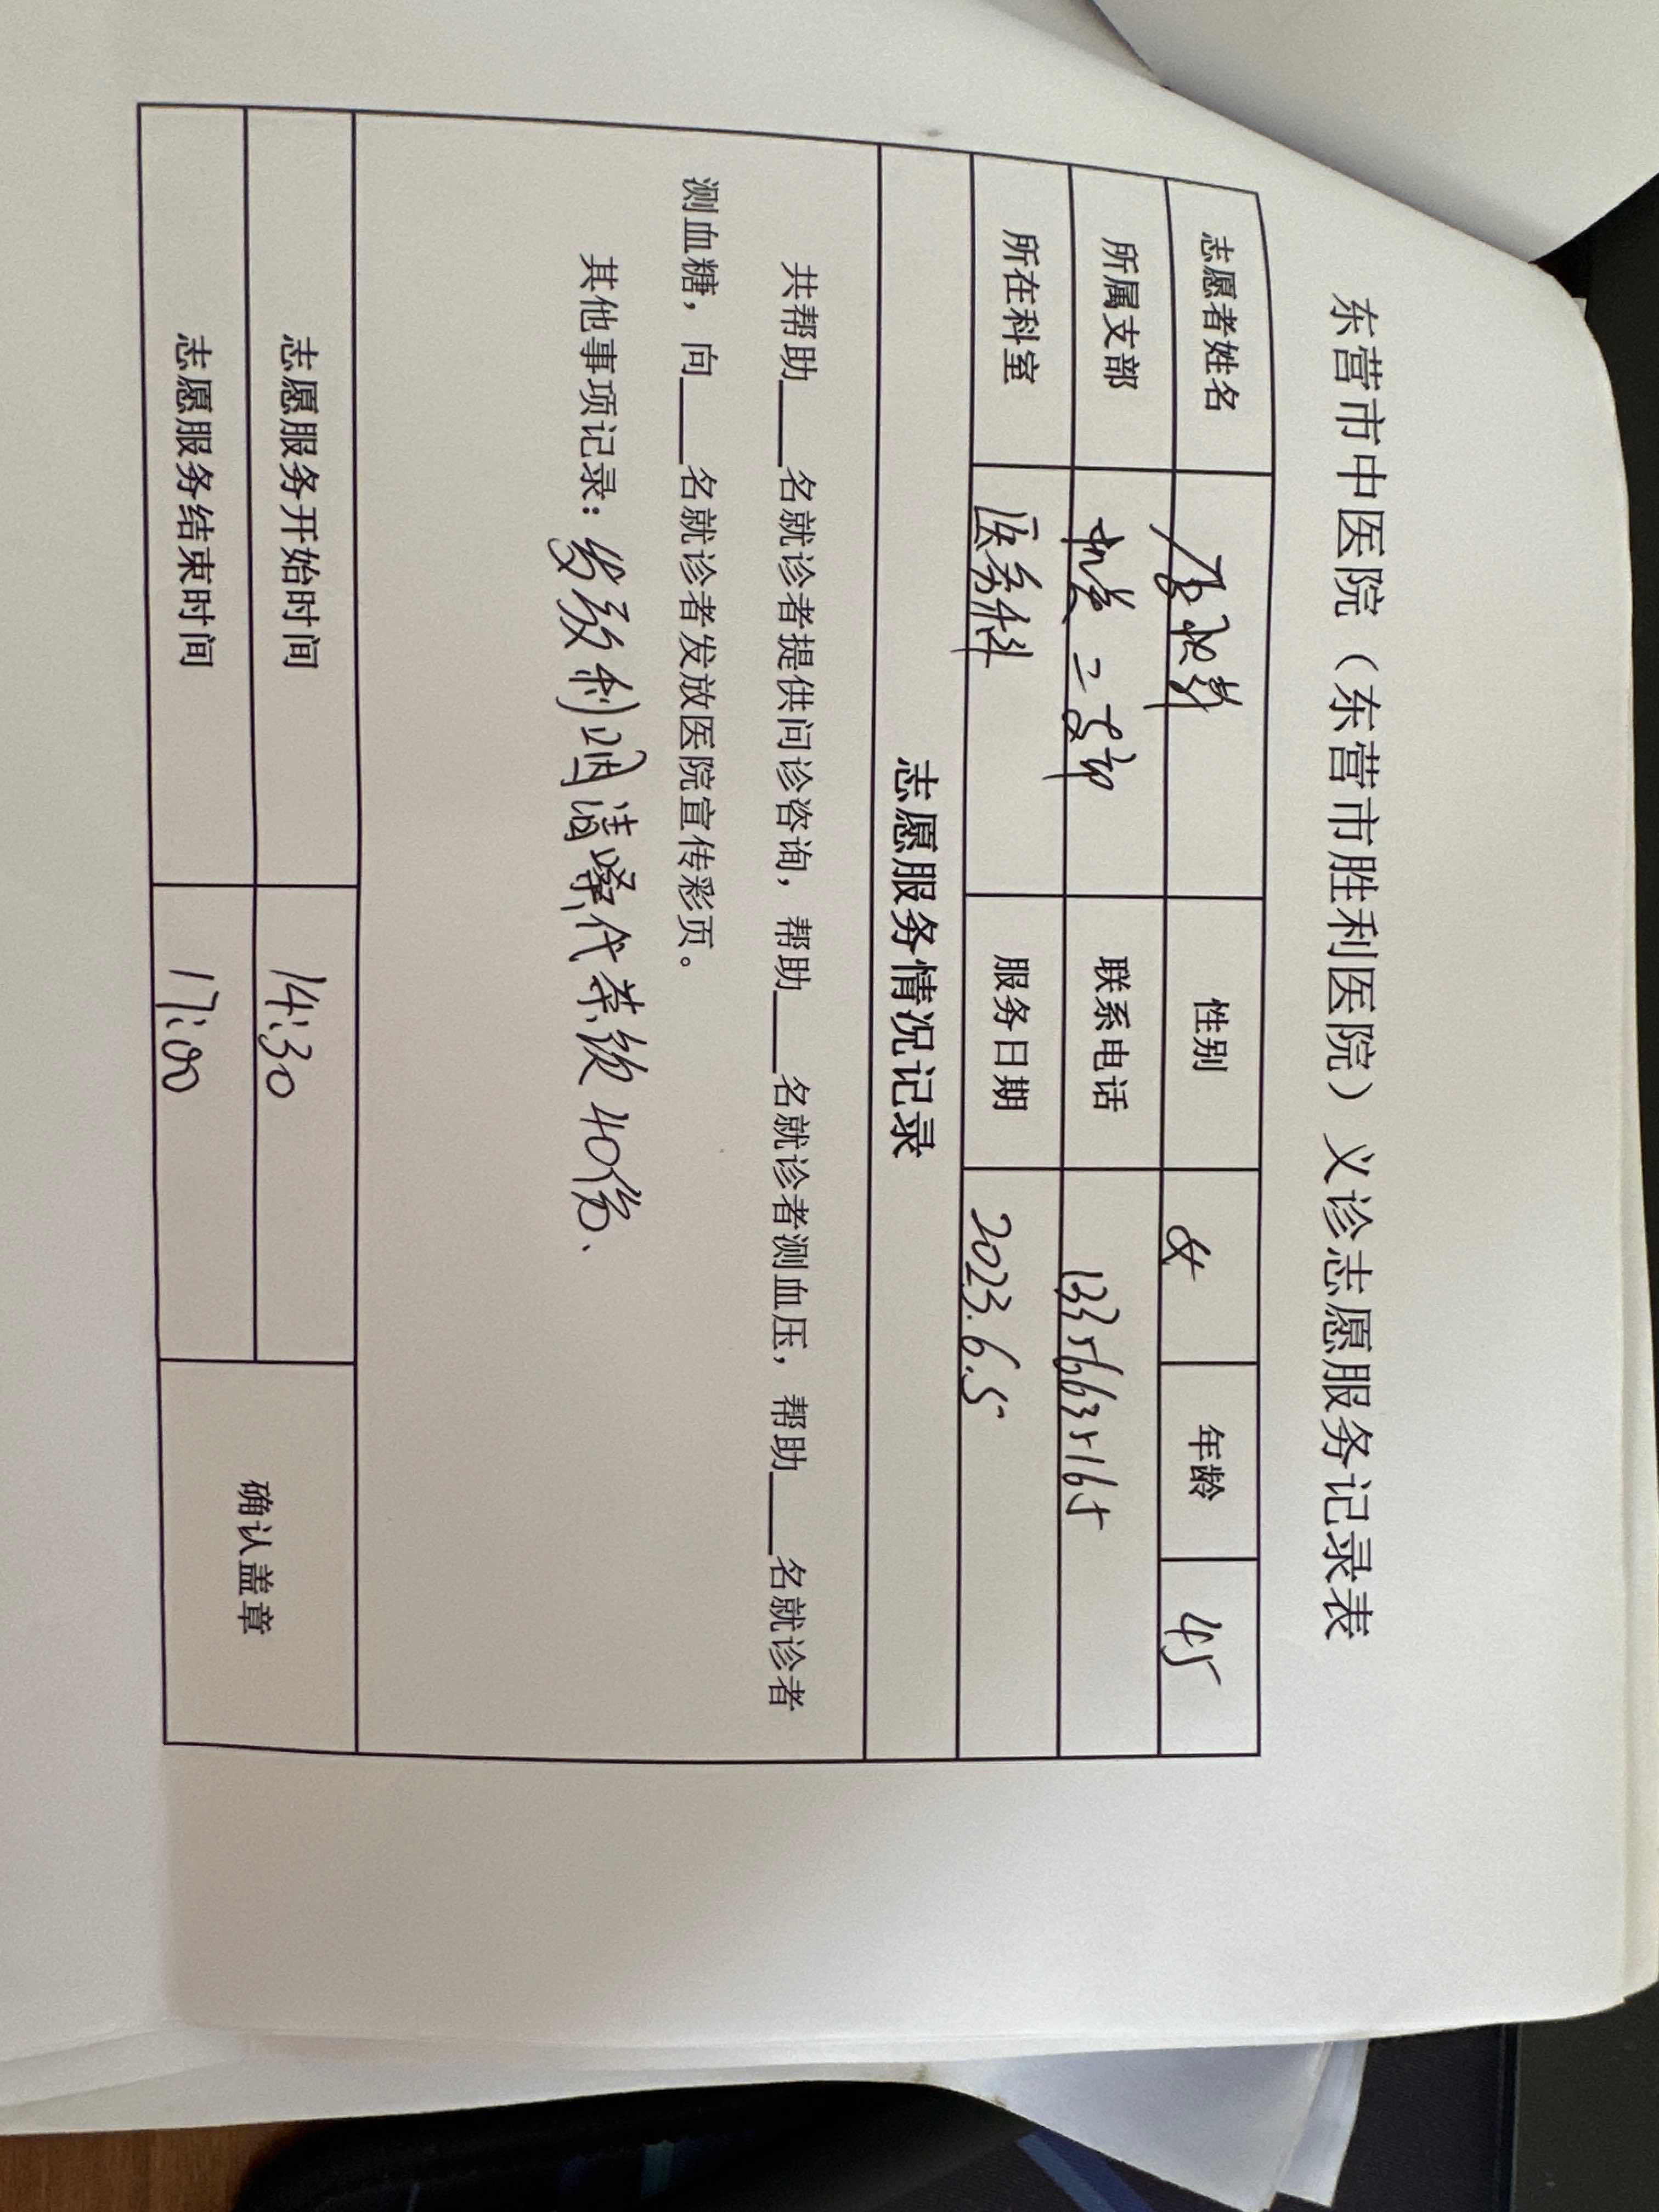 东营市中医院（东营市胜利医院）义诊志愿服务记录表
志愿者姓名 性别 女 年龄 45
所属支部 机关二支部 联系电话 13356635165
所在科室 医务科 服务日期 2023.6.5
志愿服务情况记录
共帮助___名就诊者提供问诊咨询，帮助___名就诊者测血压，帮助___名就诊者
测血糖，向___名就诊者发放医院宣传彩页。
其他事项记录：发放利咽清嗓代茶饮40份、
志愿服务开始时间 14:30
志愿服务结束时间 17:00
确认盖章